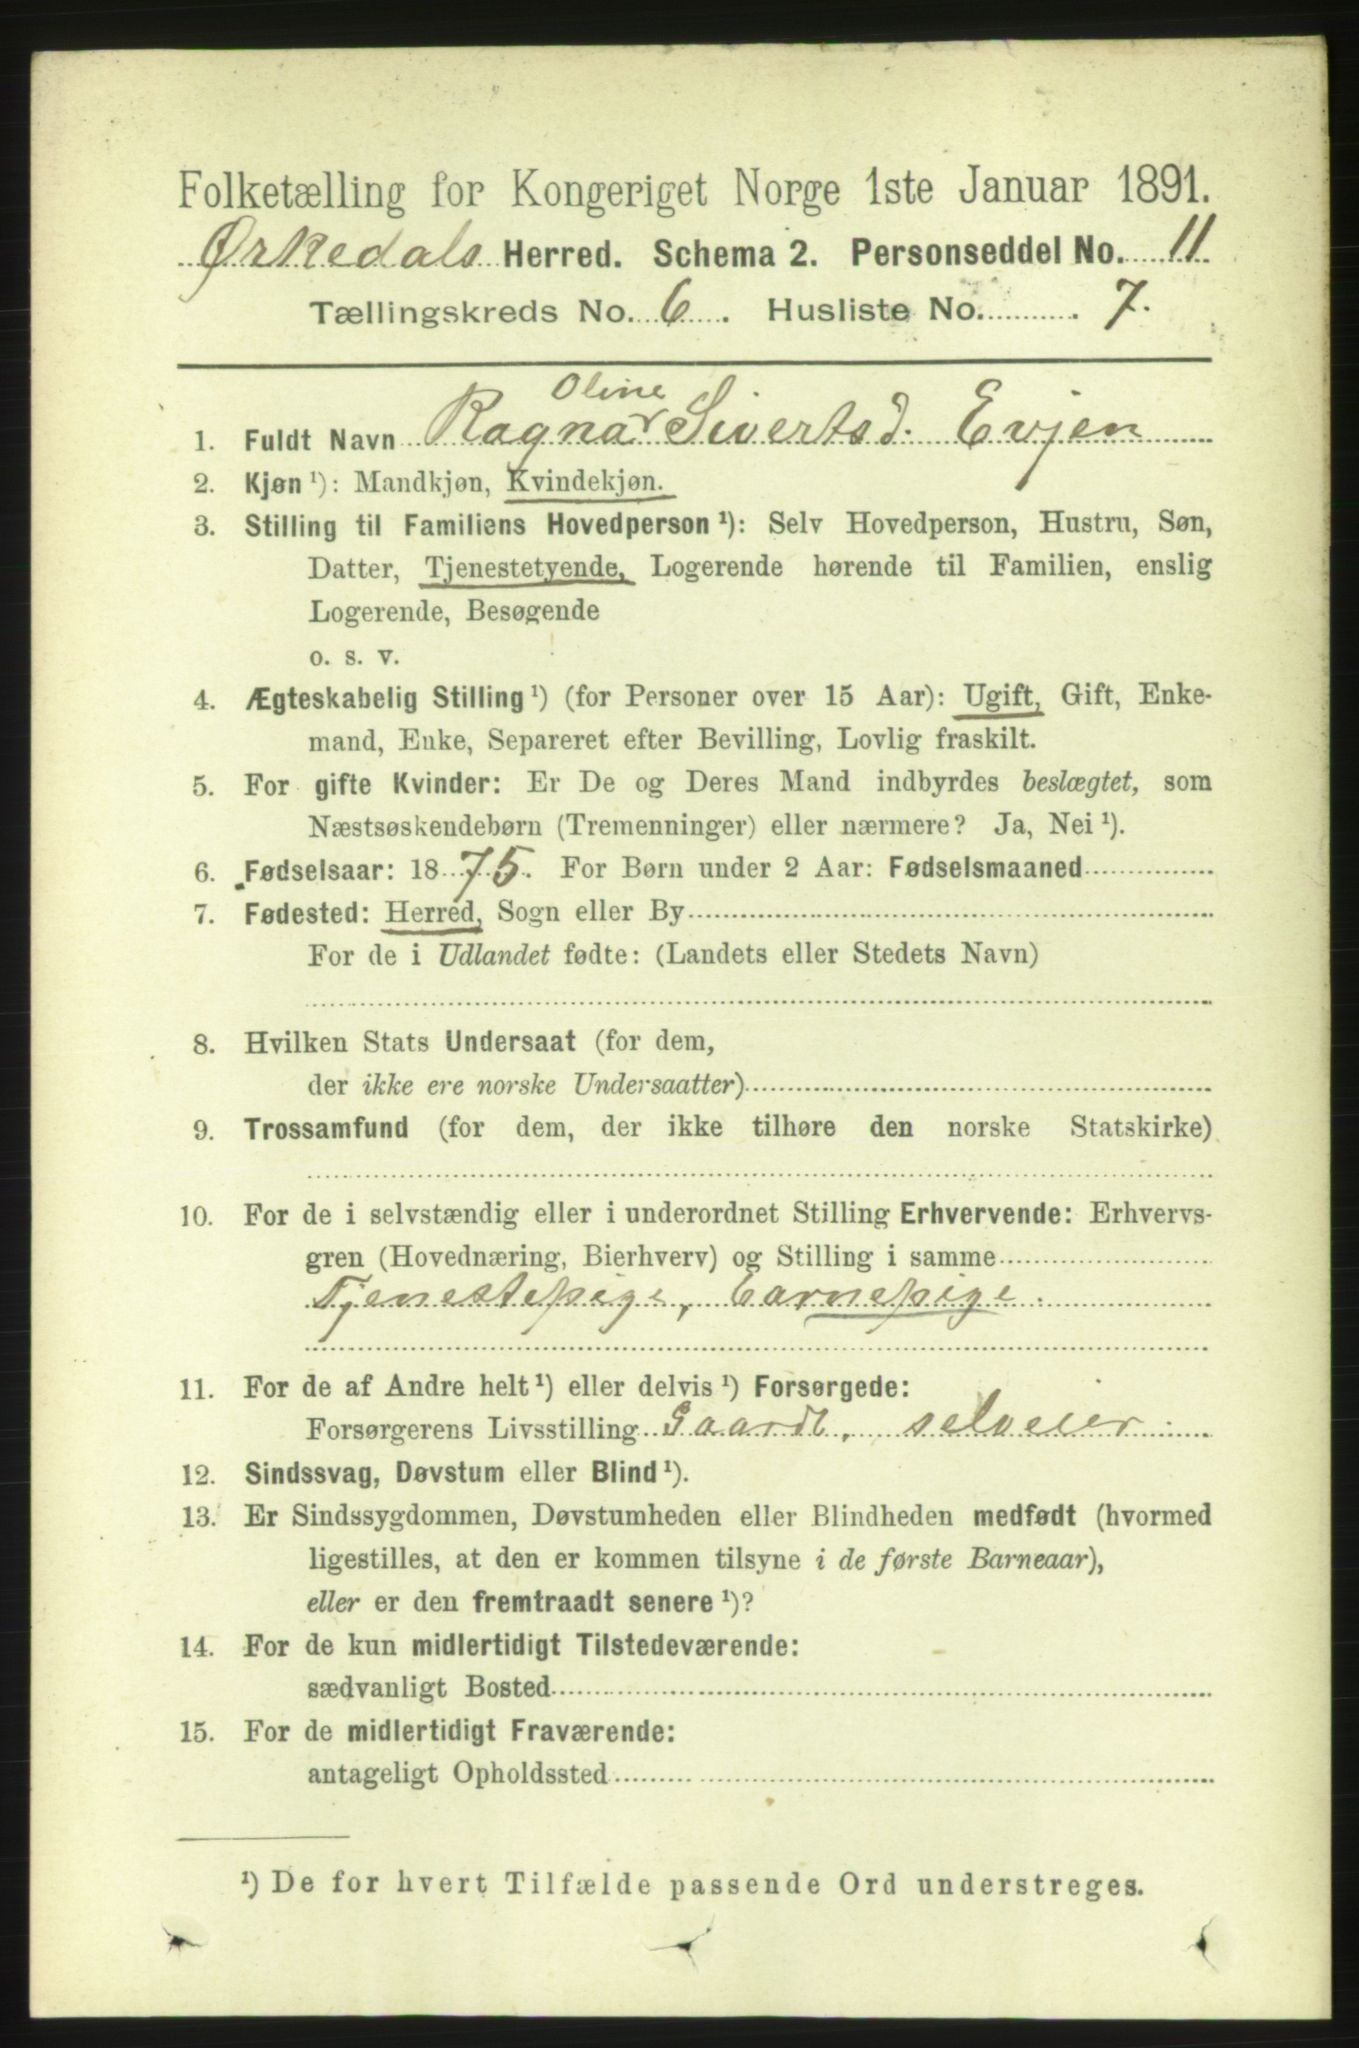 Folketælling for Kongeriget Norge 1ste Januar 1891.
Ørkedals Herred. Schema 2. Personseddel No. 11
Tællingskreds No. 6. Husliste No. 7.
Oline
1. Fuldt Navn Ragna Sivertsd. Evjen
2. Kjøn ¹): Mandkjøn, Kvindekjøn.
3. Stilling til Familiens Hovedperson ¹): Selv Hovedperson, Hustru, Søn,
Datter, Tjenestetyende, Logerende hørende til Familien, enslig
Logerende, Besøgende
o. s. v.
4. Ægteskabelig Stilling ¹) (for Personer over 15 Aar): Ugift, Gift, Enke-
mand, Enke, Separeret efter Bevilling, Lovlig fraskilt.
5. For gifte Kvinder: Er De og Deres Mand indbyrdes beslægtet, som
Næstsøskendebørn (Tremenninger) eller nærmere? Ja, Nei ¹).
6. Fødselsaar: 1875. For Børn under 2 Aar: Fødselsmaaned
7. Fødested: Herred, Sogn eller By
For de i Udlandet fødte: (Landets eller Stedets Navn)
8. Hvilken Stats Undersaat (for dem,
der ikke ere norske Undersaatter)
9. Trossamfund (for dem, der ikke tilhøre den norske Statskirke)
10. For de i selvstændig eller i underordnet Stilling Erhvervende: Erhvervs-
gren (Hovednæring, Bierhverv) og Stilling i samme
Tjenestepige, barnepige.
11. For de af Andre helt ¹) eller delvis ¹) Forsørgede:
Forsørgerens Livsstilling Gaardb. selveier.
12. Sindssvag, Døvstum eller Blind ¹).
13. Er Sindssygdommen, Døvstumheden eller Blindheden medfødt (hvormed
ligestilles, at den er kommen tilsyne i de første Barneaar),
eller er den fremtraadt senere ¹)?
14. For de kun midlertidigt Tilstedeværende:
sædvanligt Bosted
15. For de midlertidigt Fraværende:
antageligt Opholdssted
¹) De for hvert Tilfælde passende Ord understreges.